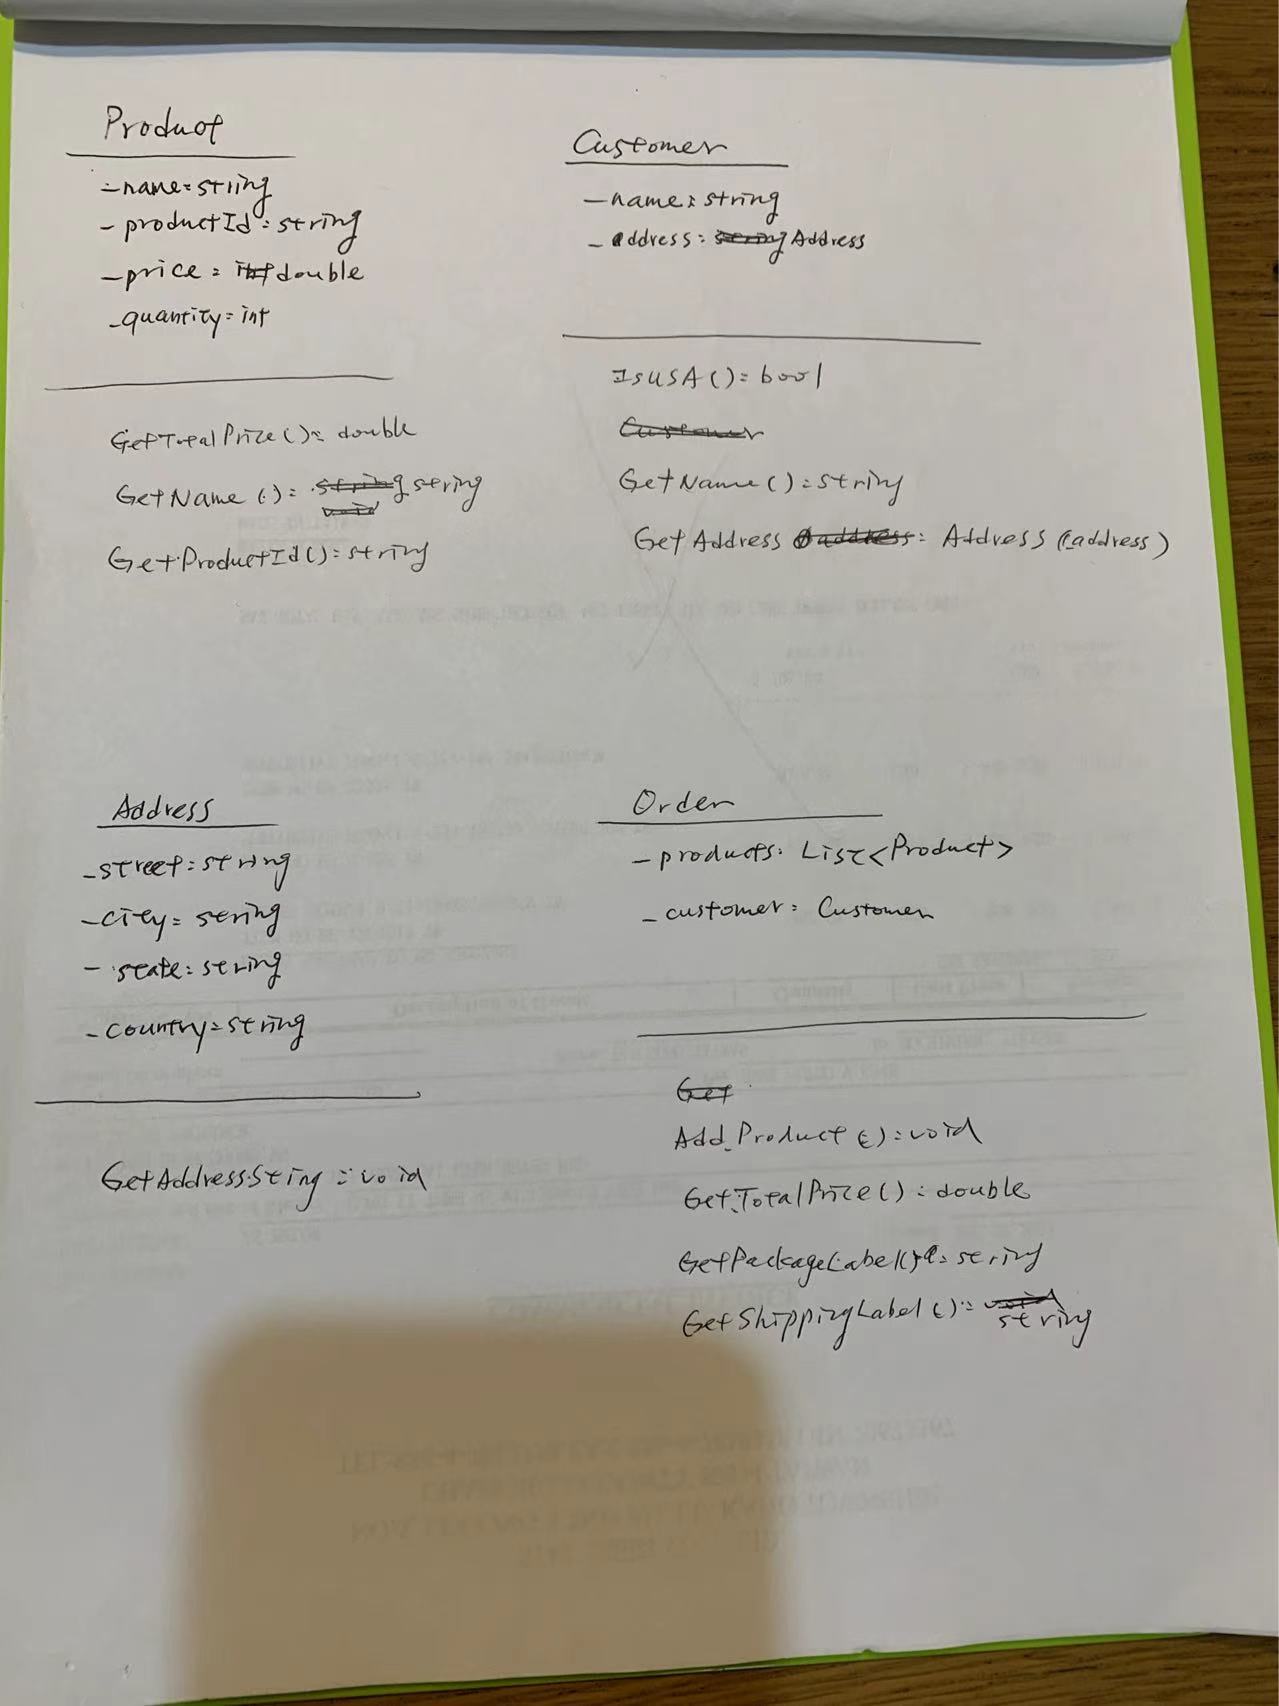 Product
-name: string
-productId: string
-price: double
-quantity: int
GetTotalPrize(): double
GetName(): string
GetProductId(): string
Customer
-name: string
-address: Address
IsUSA(): bool
GetName(): string
GetAddress: Address (address)
Address
-street: string
-city: string
-state: string
-country: string
GetAddressString: void
Order
-products: List<Product>
-customer: Customer
Add_Product(): void
Get_TotalPrize(): double
GetPackageLabel(): string
GetShippingLabel(): string